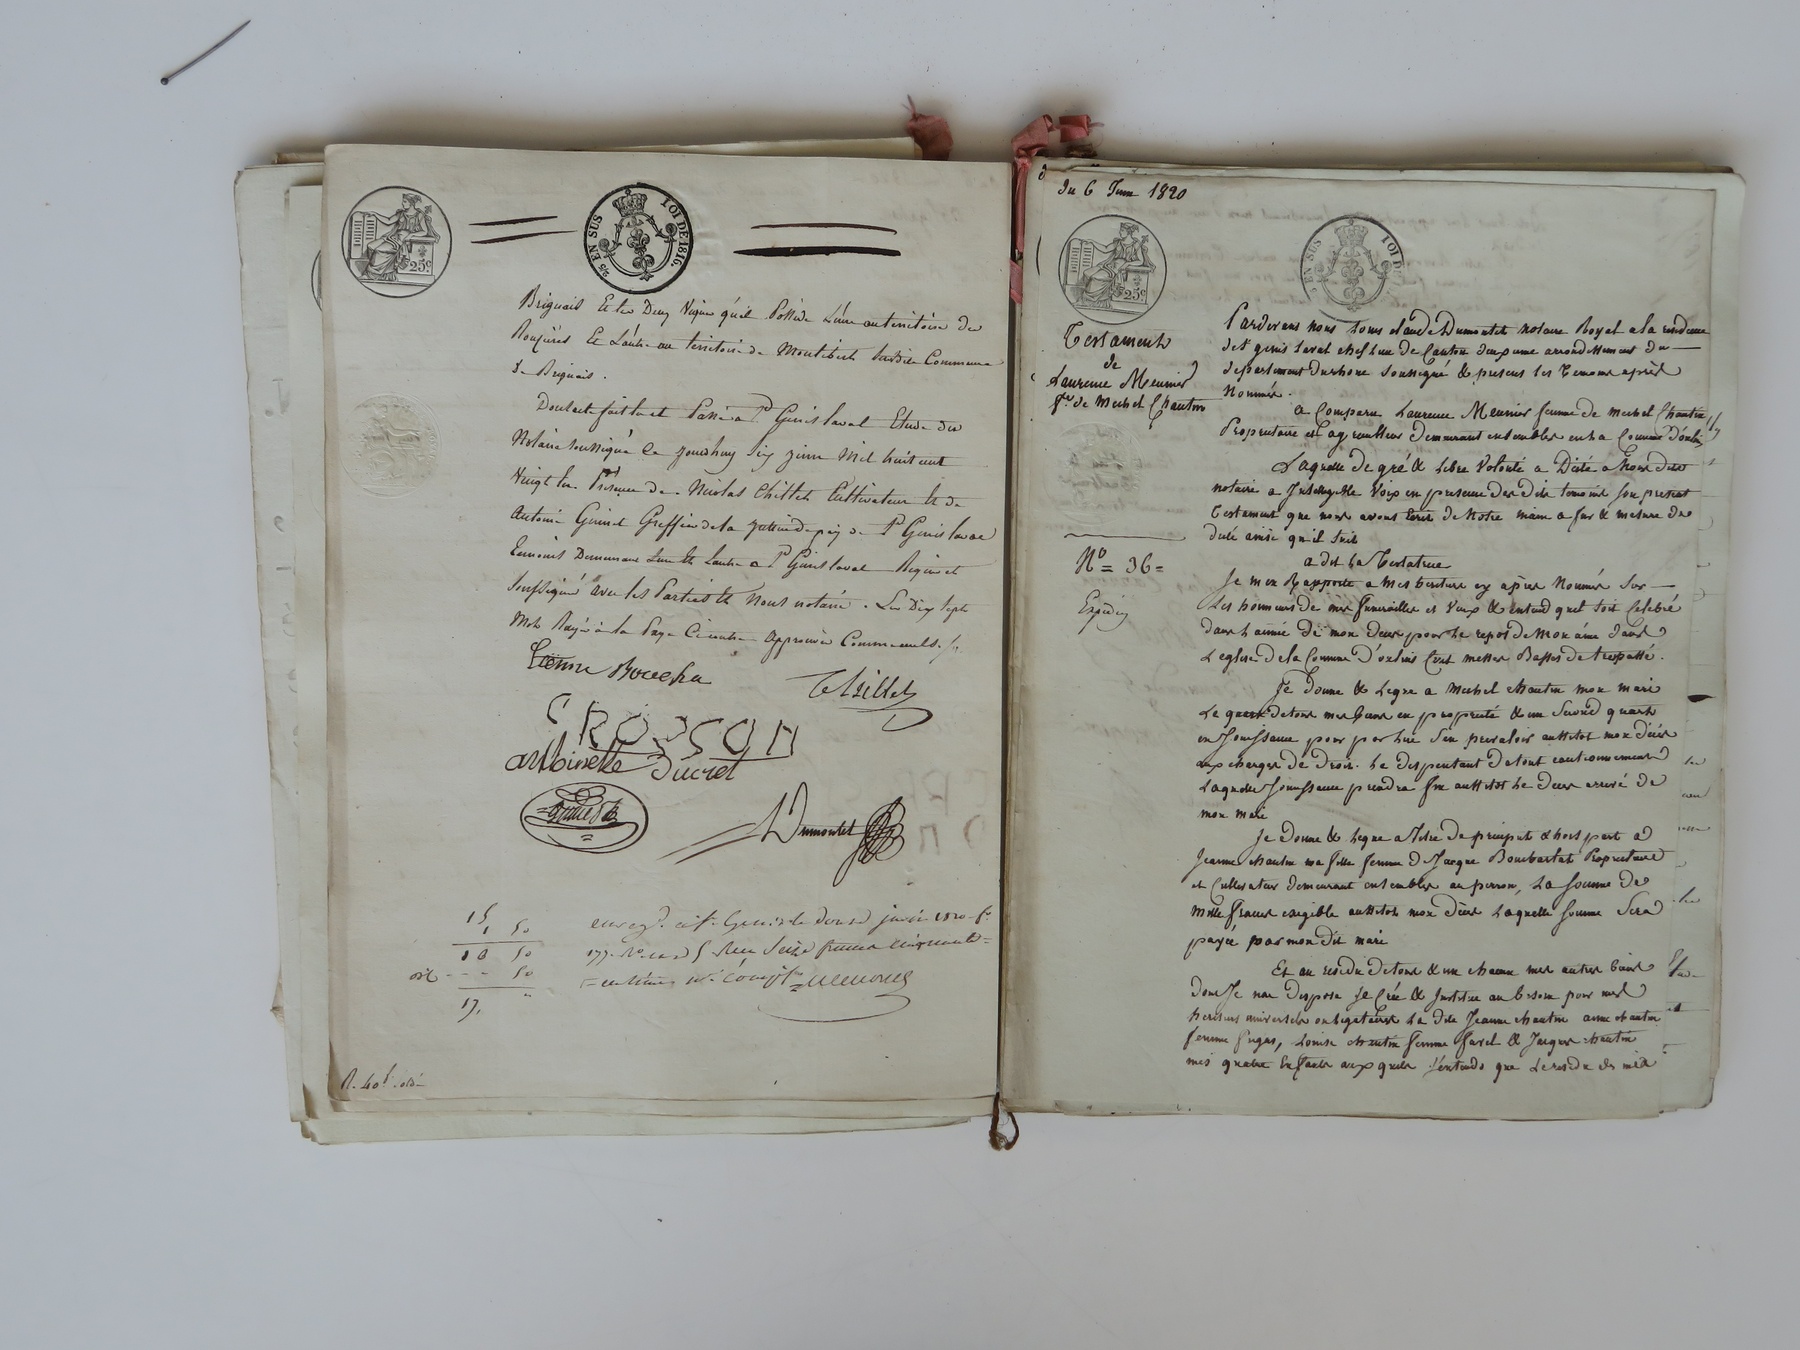 25c
25 EN SUS LOI DE 1816.
Brignais Et les Deux Vignes qu'il Possède L'une au territoire de
Rouzières Et L'autre au territoire de Montibert susdite Commune
de Brignais.
Dont acte fait lu et Passé a St Genis laval Etude du
Notaire soussigné Ce jourdhuy six juin Mil huit cent
Vingt En Présence de Nicolas Chillet Cultivateur Et de
Antoine Guinet Greffier de la justice de paix de St Genis laval
Temoins Demeurant L'un Et L'autre a St Genis laval Requis et
Soussignés avec les Parties Et Nous notaire. Les Dix sept
Mots Rayés à la Page Ci contre approuvés Comme nuls ./.
Etienne Boucha
Chillet
CROSSON
antoinette Ducret
Guinet
Dumontet
15
1 50
16 50
50
17.
enreg. a St Genis le douze juin 1820 fo
177. Ro. case 5 Reçu Seize francs cinquante
centimes
R. 40f
du 6 Juin 1820
25c
25 EN SUS LOI DE
Testament
de
Laurence Meunier
fe de Michel Chautin
No = 36 =
Expédiez
Pardevant nous Louis claude Dumontet notaire Royal a la residence
de St genis Laval chef lieu de Canton deuxieme arrondissement du
departement du rhone soussigné & presens les temoins après
Nommés.
a Comparu Laurence Meunier femme de michel Chautin
Proprietaire et agriculteur demeurant ensembles en la Commune d'oulins
Laquelle de gré & Libre Volonté a Dicté a Nous dit
notaire a Intelligible Voix en presence des dits temoins son present
testament que nous avons Ecrit de Notre main a fur & mesure du
dicté ainsi qu'il suit
a dit La Testatrice
Je m'en Rapporte a mes heritiers cy après Nommés Sur
Les honneurs de mes funerailles et Veux & entend quil soit Celebré
dans L'année de mon decès pour Le repos de Mon âme dans
L'eglise de la Commune d'oulins Cent messes Basses de trepassé.
Je Donne & Legue a Michel Chautin mon mari
Le quart de tous mes biens en proprieté & un Second quart
en Jouissance pour par Lui s'en prevaloir aussitot mon décès
aux charges de droit. Le dispensant de tout cautionnement
Laquelle Jouissance prendra fin aussitot Le decès arrivé de
mon mari
Je donne & Legue a titre de preciput & hors part a
Jeanne Chautin ma fille femme de Jacque Bombarlat Proprietaire
et Cultivateur demeurant ensembles au perron, La Somme de
Mille francs exigible aussitot mon décès Laquelle somme Sera
payée par mon dit mari
Et au residu de tous & un chacun mes autres biens
dont Je nai disposé Je Crée & Institue au besoin pour mes
heritiers universels La dite Jeanne Chautin anne Chautin
femme Louise Chautin femme & Jacques Chautin
mes quatre Enfants aux quels J'entends que Le residu de mes